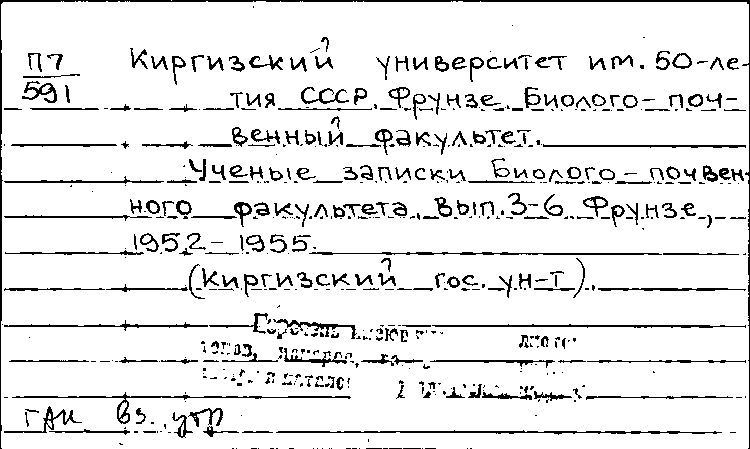 П7
591
Киргизский университет им. 50-ле-
тия СССР. Фрунзе. Биолого-поч-
венный факультет.
Ученые записки Биолого-почвен-
ного факультета. Вып. 3-6. Фрунзе,
1952-1955.
(Киргизский гос. ун-т).